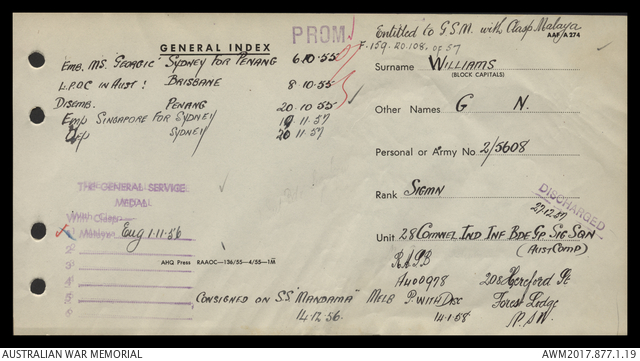 PROM
Entitled to G.S.M. with Clasp Malaya
F.159.20.108. of 57
AAF/A 274
GENERAL INDEX
EMB. MS. "GEORGIC" SYDNEY FOR PENANG 6.10.55
L.P.O.C IN AUST: BRISBANE 8.10.55
DISEMB. PENANG 20.10.55
EMB SINGAPORE FOR SYDNEY 19.11.57
SYDNEY 20.11.57
Surname WILLIAMS
(BLOCK CAPITALS)
Other Names G N.
Personal or Army No. 2/5608
Rank SIGMN
DISCHARGED
27.12.57
Unit 28 COMWEL IND INF BDE GP SIG SQN
(AUST COMP)
THE GENERAL SERVICE
MEDAL
With Clasp
Malaya Eng 1.11.56
AHQ Press RAAOC—136/55—4/55—1M
A400978
208 Hereford St
Forest Lodge
N.S.W.
CONSIGNED ON S.S "MANDAMA" MELB P. WITH DISC
14.12.56. 14.1.58
AUSTRALIAN WAR MEMORIAL
AWM2017.877.1.19